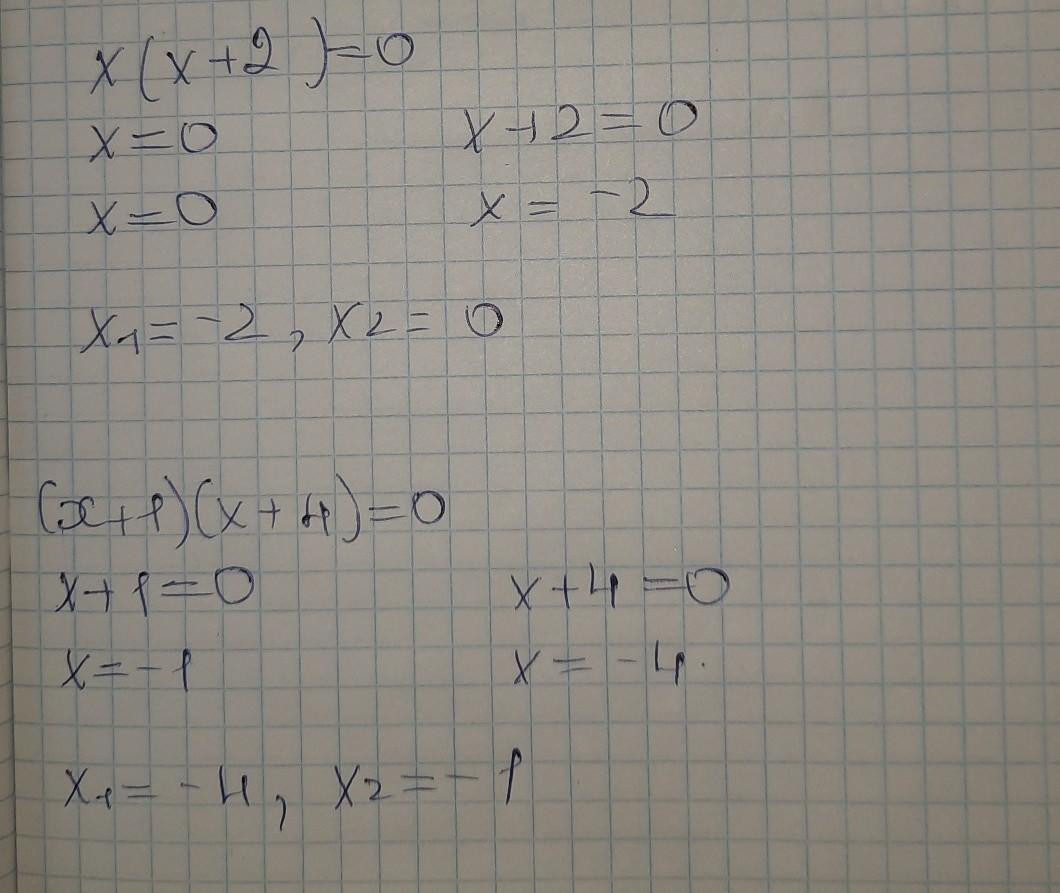 x(x+2)=0
x=0 x+2=0
x=0 x = -2
x₁= -2, x2= 0
(x+1)(x+4)=0
x+1=0 x+4=0
x=-1 x = -4.
x₁= -4, x2=-1